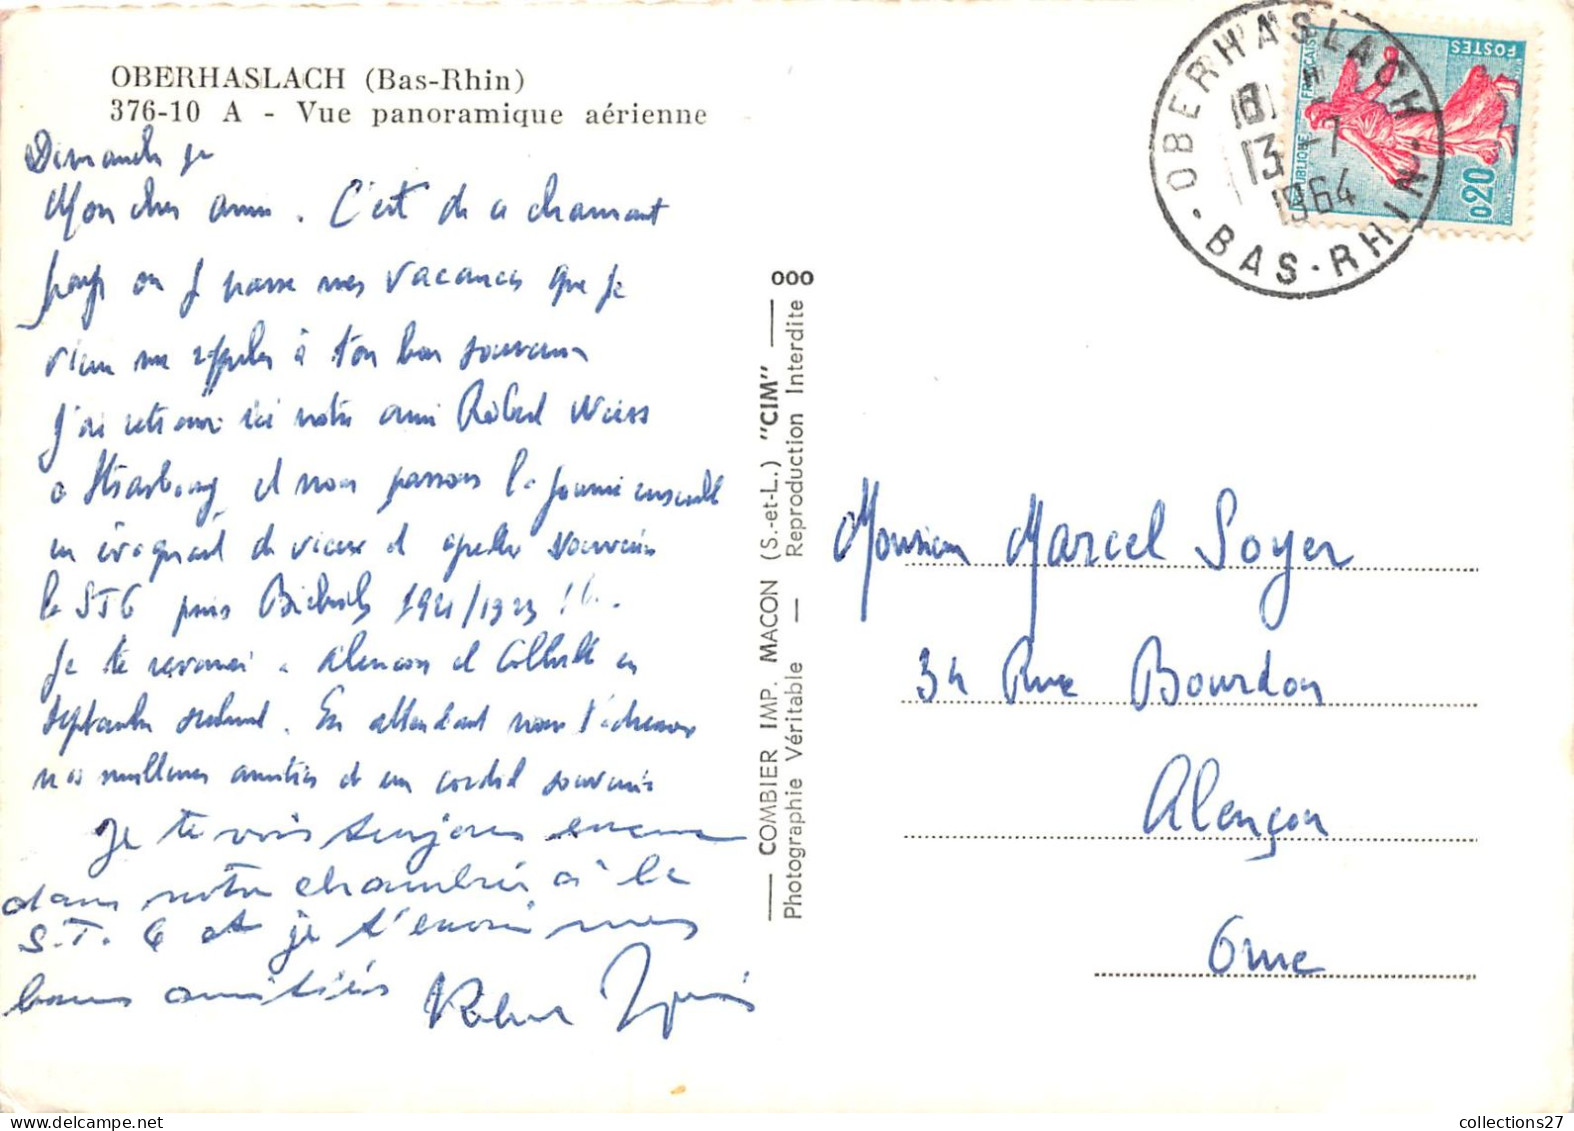 OBERHASLACH (Bas-Rhin)
376-10 A - Vue panoramique aérienne
Dimanche
Mon cher ami. C'est de ce charmant
pays où je passe mes vacances que je
viens me rappeler à ton bon souvenir
J'ai retrouvé ici notre ami Robert Weiss
à Strasbourg et nous passons la journée ensemble
en évoquant de vieux et agréables souvenirs
la ST6 puis 1921/1923
Je te reverrai à Alençon et en
septembre seulement. En attendant nous t'adressons
nos meilleures amitiés et un cordial souvenir
Je te vois toujours encore
dans notre chambrée à la
S.T. 6 et je t'envoie mes
bonnes amitiés Robert
OBERHASLACH
13 -7
1964
BAS-RHIN
RÉPUBLIQUE FRANÇAISE
POSTES
0,20
000
COMBIER IMP. MACON (S.-et-L.) "CIM"
Photographie Véritable — Reproduction Interdite
Monsieur Marcel Soyer
34 Rue Bourdon
Alençon
Orne
collections27